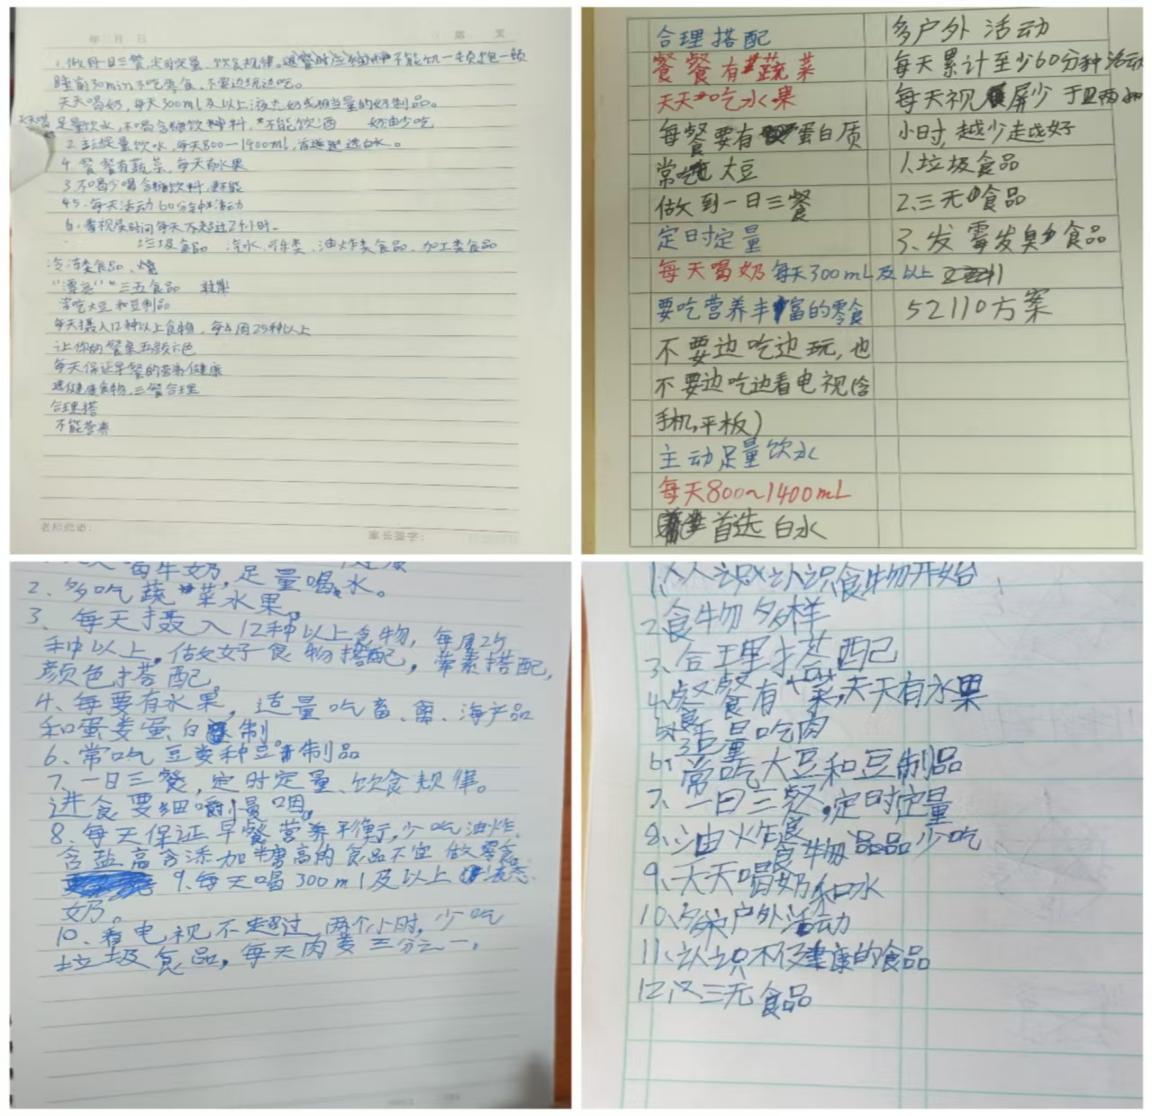 年 月 日
1.做到一日三餐,定时定量、饮食规律
睡前30min不吃零食,不要边玩边吃。
天天喝奶,每天300ml及以上液态奶或相当量的奶制品。
足量饮水,不喝含糖饮料,不能饮酒 奶油少吃
足量饮水,每天800-1400ml,首选白水。
4.餐餐有蔬菜,每天有水果
3.不喝少喝含糖饮料
45.每天活动60分钟活动
6.看视屏时间每天不超过2小时。
垃圾食品 汽水、可乐类、油炸类食品、加工类食品
冷冻类食品、烧
三五食品
常吃大豆和豆制品
每天摄入12种以上食物,每周25种以上
让你的餐桌五颜六色
每天保证早餐的营养健康
选健康食物,三餐合理
合理搭
不能营养
老师批语: 家长签字:
合理搭配
餐餐有蔬菜
天天吃水果
每餐要有蛋白质
常吃大豆
做到一日三餐
定时定量
每天喝奶 每天300mL及以上
要吃营养丰富的零食
不要边吃边玩,也
不要边吃边看电视(含
手机,平板)
主动足量饮水
每天800~1400mL
首选白水
多户外活动
每天累计至少60分种活动
每天视屏少于
小时,越少走越好
1.垃圾食品
2.三无食品
3、发霉发臭食品
52110方案
喝牛奶,足量喝水。
2.多吃蔬菜水果。
3、每天摄入12种以上食物,每周25
种以上,做好食物搭配,荤素搭配,
颜色搭配
4、每要有水果,适量吃畜、禽、海产品
和蛋类蛋白制
6、常吃豆类种豆制品
7、一日三餐,定时定量、饮食规律。
进食要细嚼慢咽。
8、每天保证早餐营养平衡,少吃油炸
含盐高含添加糖高的食品不宜做零食
9、每天喝300ml及以上液态
奶。
10、看电视不超过两个小时,少吃
垃圾食品,每天肉类三分之一。
1.从认识认识食物开始
2食物多样
3、合理搭配
4、餐餐有菜,天天有水果
5适量吃肉
6、常吃大豆和豆制品
7、一日三餐,定时定量
8、油炸食物品少吃
9、天天喝奶和水
10、多户外活动
11、认识不健康的食品
12、三无食品